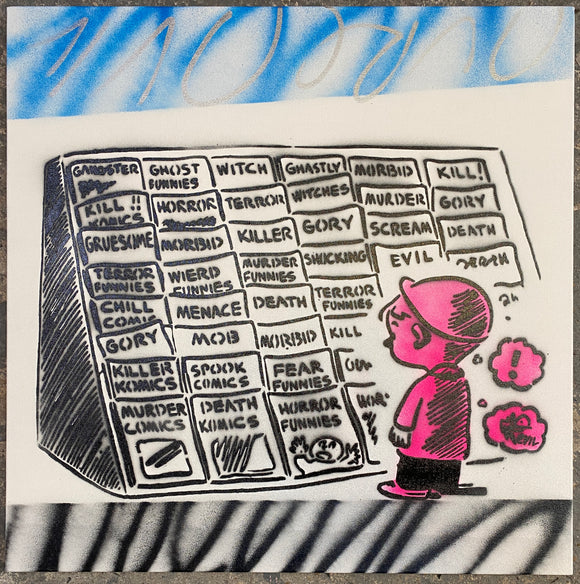 GANGSTER
GHOST
FUNNIES
WITCH
GHASTLY
MORBID
KILL!
KILL!!
COMICS
HORROR
TERROR
WITCHES
MURDER
GORY
GRUESOME
MORBID
KILLER
GORY
SCREAM
DEATH
TERROR
FUNNIES
WIERD
FUNNIES
MURDER
FUNNIES
SHUCKING
EVIL
DEATH
CHILL
COMIC
MENACE
DEATH
TERROR
FUNNIES
GORY
MOB
MORBID
KILL
KILLER
KOMICS
SPOOK
COMICS
FEAR
FUNNIES
MURDER
COMICS
DEATH
KOMICS
HORROR
FUNNIES
HOR.
!